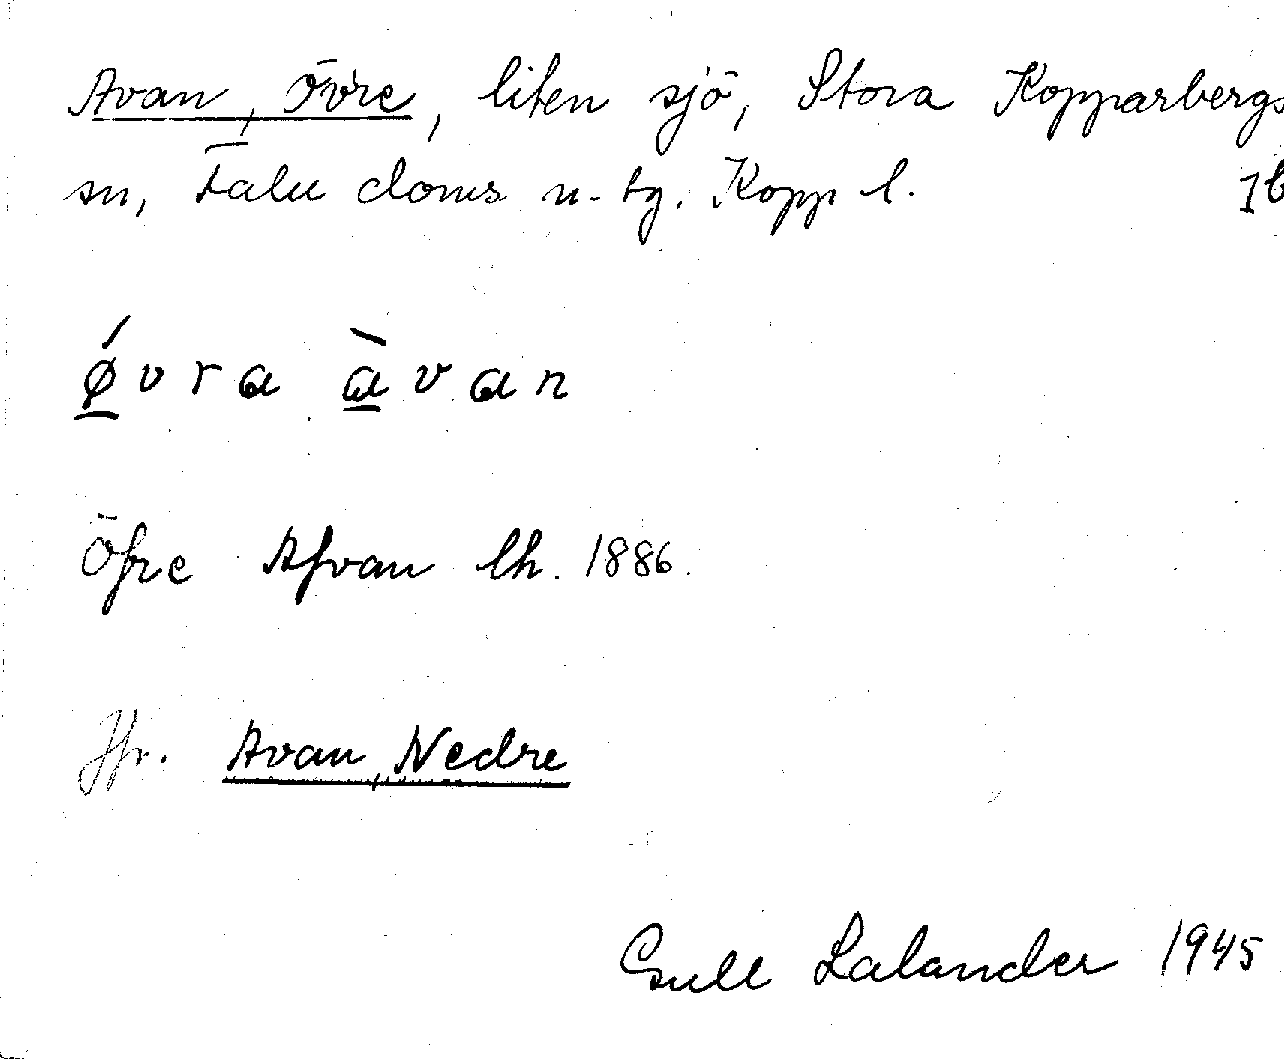 Avan, Övre, liten sjö, Stora Kopparbergs
sn, Falu doms n. tg. Kopp l. 1b
ǿvra àvan
Öfre Afvan lh. 1886.
Jfr. Avan, Nedre
Gull Lalander 1945